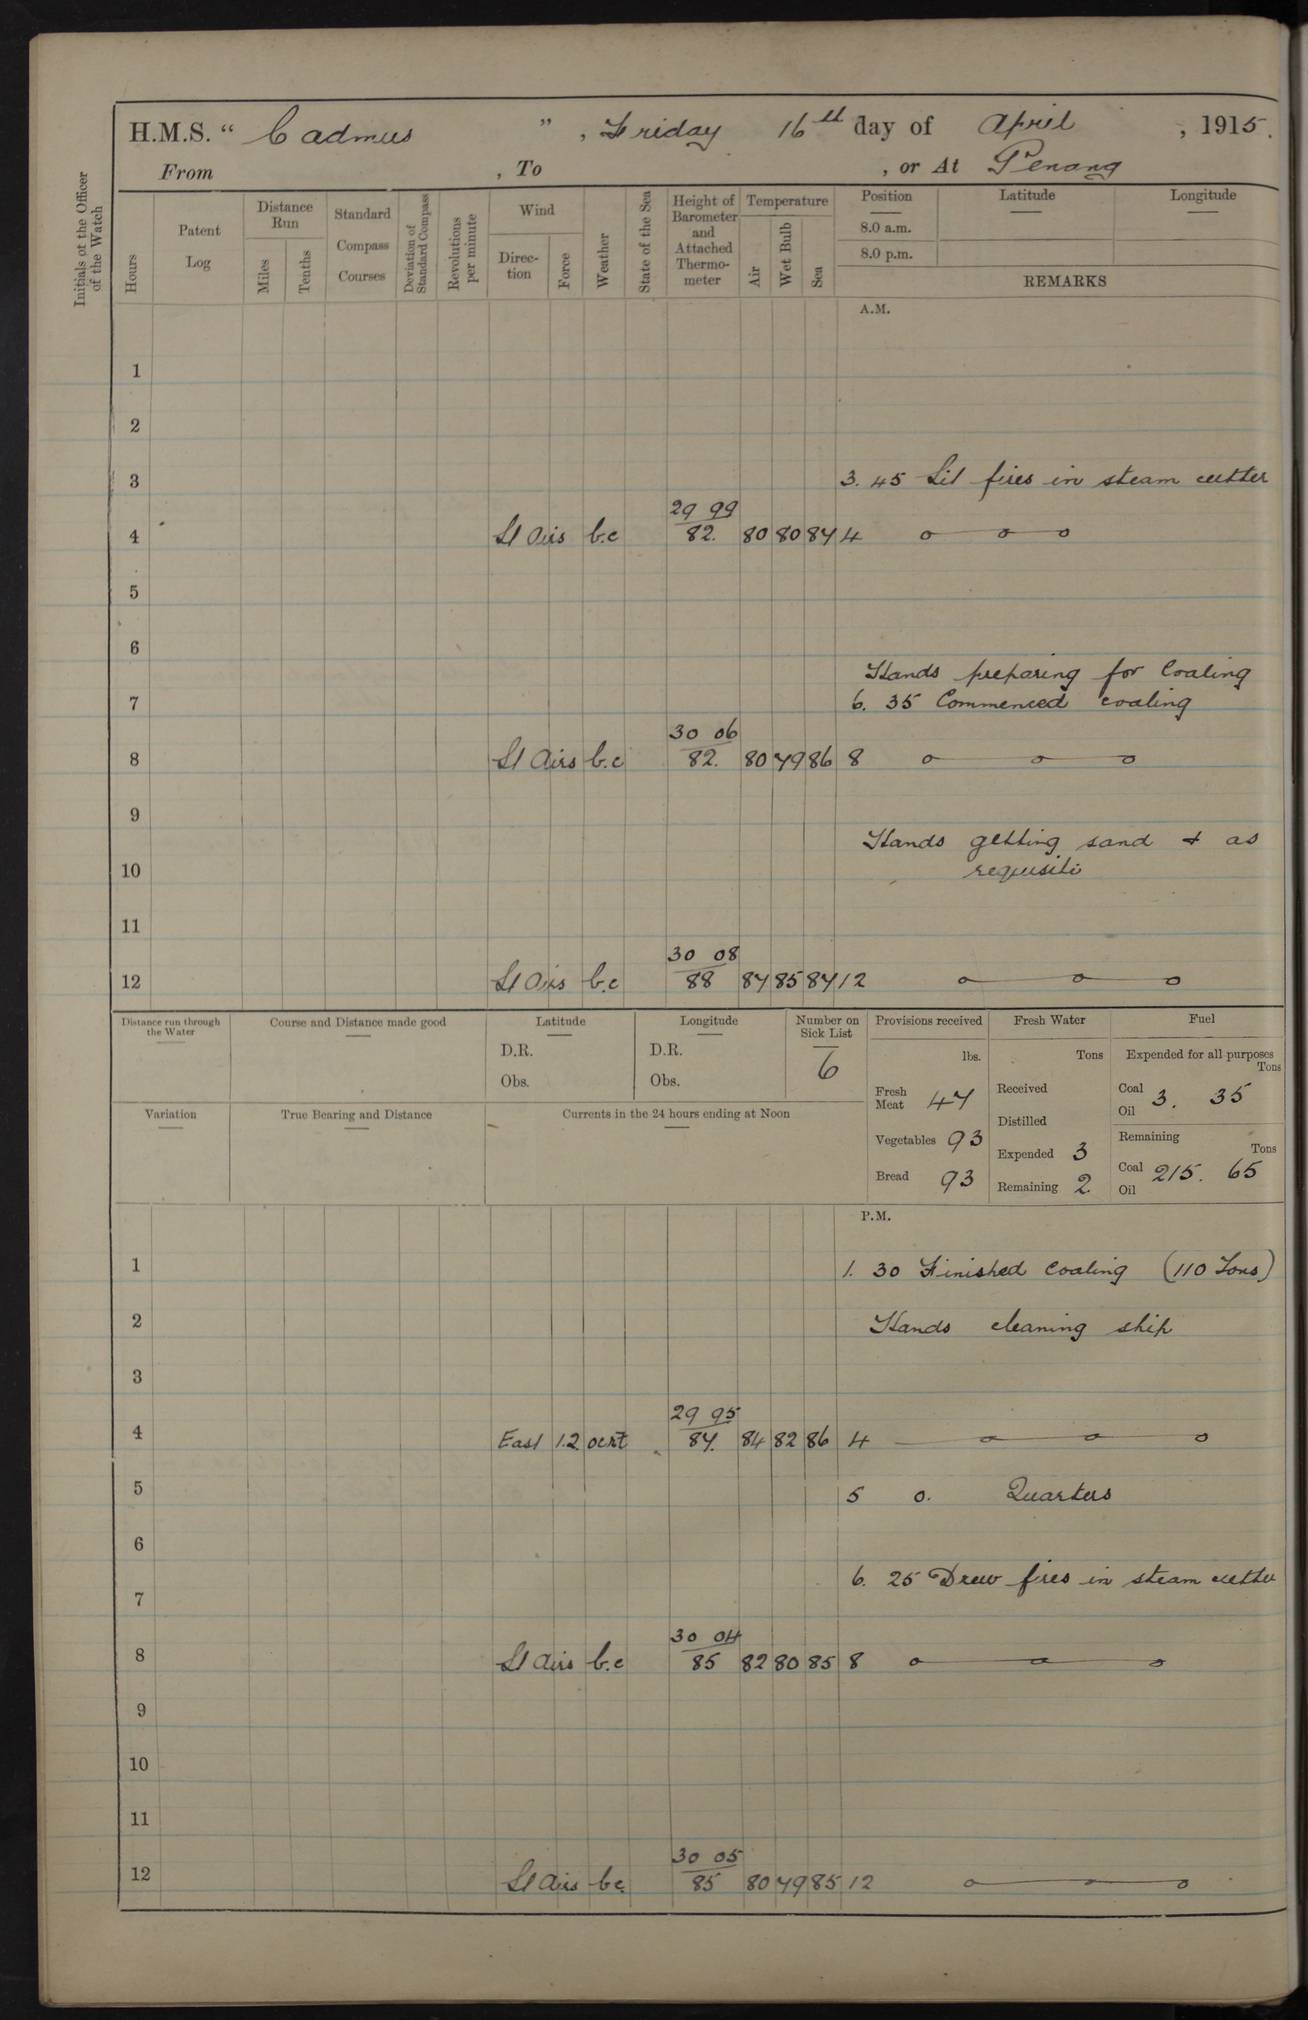 H.M.S. “ Cadmus ” , Friday 16th day of April , 1915.
From , To , or At Penang
Initials of the Officer of the Watch
Hours
Patent Log
Distance Run
Miles
Tenths
Standard Compass Courses
Deviation of Standard Compass
Revolutions per minute
Wind
Direction
Force
Weather
State of the Sea
Height of Barometer and Attached Thermometer
Temperature
Air
Wet Bulb
Sea
Position
8.0 a.m.
8.0 p.m.
Latitude
Longitude
REMARKS
A.M.
1
2
3 3. 45 Lit fires in steam cutter
29 99
4 Lt Airs b.c 82. 80 80 84 4
5
6
Hands preparing for Coaling
7 6. 35 Commenced coaling
30 06
8 Lt Airs b.c 82. 80 79 86 8
9
Hands getting sand & as
10 requisite
11
30 08
12 Lt Airs b.c 88 87 85 87 12
Distance run through the Water
Course and Distance made good
Latitude
D.R.
Obs.
Longitude
D.R.
Obs.
Number on Sick List
6
Provisions received
lbs.
Fresh Meat 47
Vegetables 93
Bread 93
Fresh Water
Tons
Received
Distilled
Expended 3
Remaining 2
Fuel
Expended for all purposes
Tons
Coal
Oil 3. 35
Remaining
Tons
Coal 215. 65
Oil
Variation
True Bearing and Distance
Currents in the 24 hours ending at Noon
P.M.
1 1. 30 Finished Coaling (110 Tons)
2 Hands cleaning ship
3
29 95
4 East 1.2 87. 84 82 86 4
5 5 0. Quarters
6
6. 25 Drew fires in steam cutter
7
30 04
8 Lt Airs b.c 85 82 80 85 8
9
10
11
30 05
12 Lt Airs bc. 85 80 79 85 12